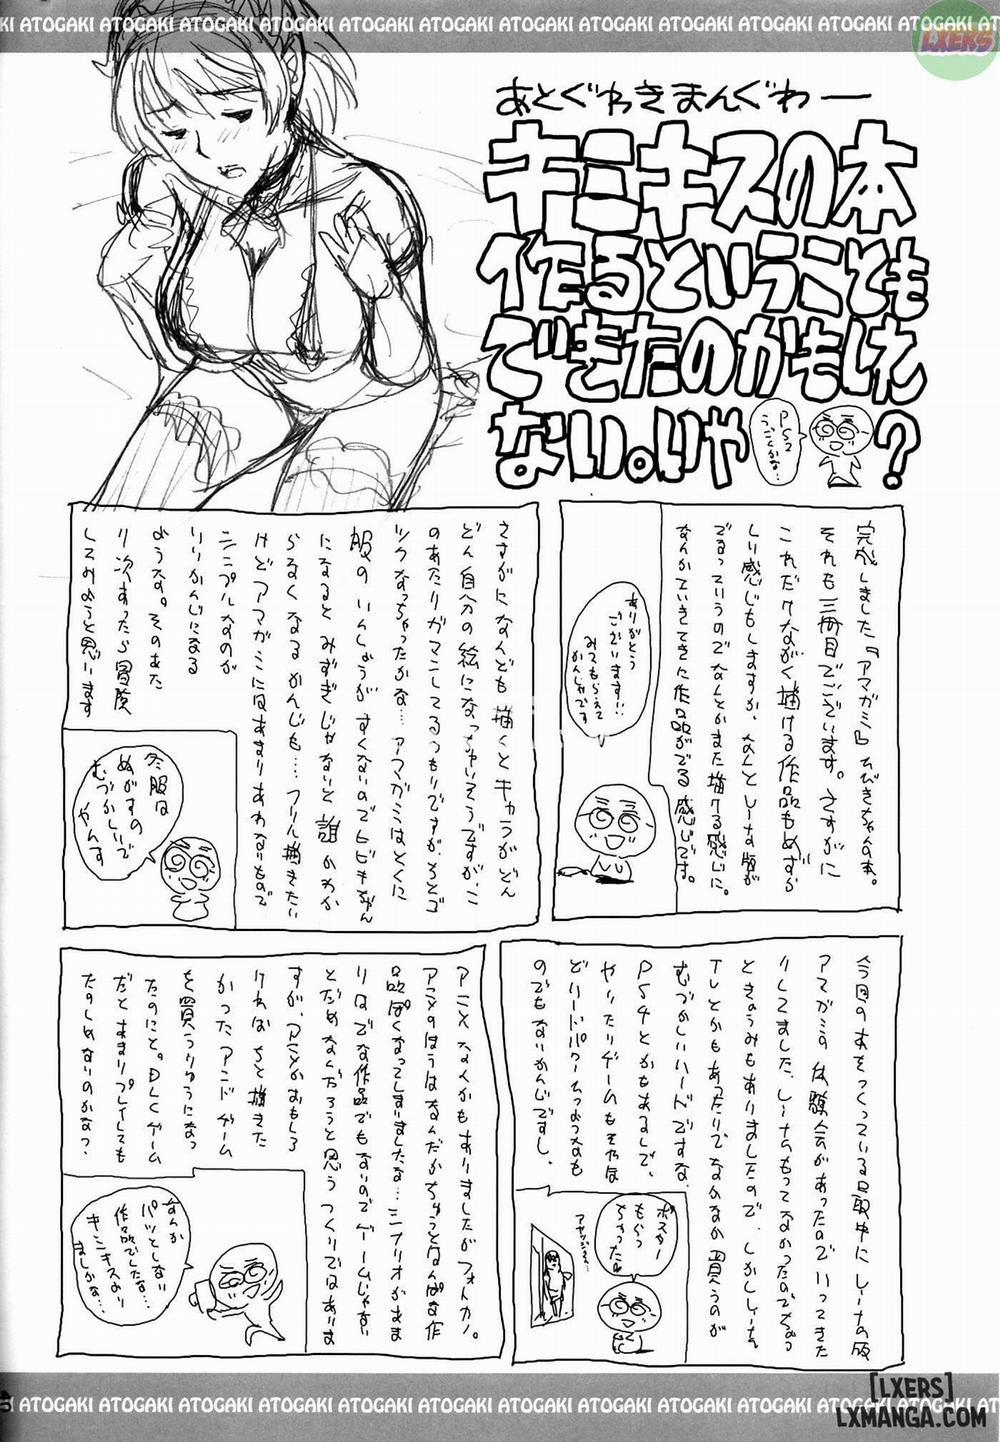 KI ATOGAKI ATOGAKI ATOGAKI ATOGAKI ATOGAKI ATOGAKI ATOGAKI ATOGAKI ATOGAKI
LXERS
あとぐゎきまんぐゎー
キミキスの本
作るということも
できたのかもしれ
ない。いや?
PS2
うごくかな…
完成しました「アマガミ」ひびきちゃん本。
それも三冊目でございます。さすがに
これだけながく描ける作品もめずら
しい感じもしますが、なんとしーな版が
でるっていうのでなんとかまた描ける感じに。
なんかていきてきに作品がでる感じです。
ありがとう
ございます!!
みてもらえて
かんしゃです
さすがになんども描くとキャラがどん
どん自分の絵になっちゃいそうですが、こ
のあたりガマンしてるつもりですが、ちとご
ツクなっちゃったかな…アマガミはとくに
服のいしょうがすくないのでヒビキちゃん
になるとみずぎじゃないと誰かわか
らなくなるかんじも…フリル描きたい
けどアマガミにはあまりあわないもので
シンプルなのが
いいかんじになる
ような。そのあた
り次あったら冒険
してみようと思います
冬服は
ぬがすの
むづかしいで
やんす
今回の本をつくっている最中にしーなの版
アマガミの体験会があったのでいってきた
りしてました。しーなもってなかったのでちょっ
ときょうみもありましたので、しかししーな
TVとかもあったりでなかなか買うのが
むづかしいハードですな。
PS4とかもあるしで、
やったりゲームもそやほ
どりーどパクームつようなも
のでもないかんじですし。
ポスター
もらっ
ちゃった
アヤツジさん
アニメなんかもありましたがフォトカノ。
アニメのほうはなんだかちょっとなんぱな作
品ぽくなってしまいましたな…シナリオがあま
りはでな作品でもないのでゲームじゃない
とだめなんだろうと思うつくりではありま
すが、アニメがおもしろ
ければちと描きた
かったアンドゲーム
を買うりゆうになっ
たのにと。DLCゲーム
だとあまりプレイしても
たのしめないのかな?
なんか
パッとしない
作品でしたな…
キミキスより
ましかな…
40
ATOGAKI ATOGAKI ATOGAKI ATOGAKI ATOGAKI ATOGAKI ATOGAKI ATOGAKI ATOGAKI
[LXERS]
LXMANGA.COM